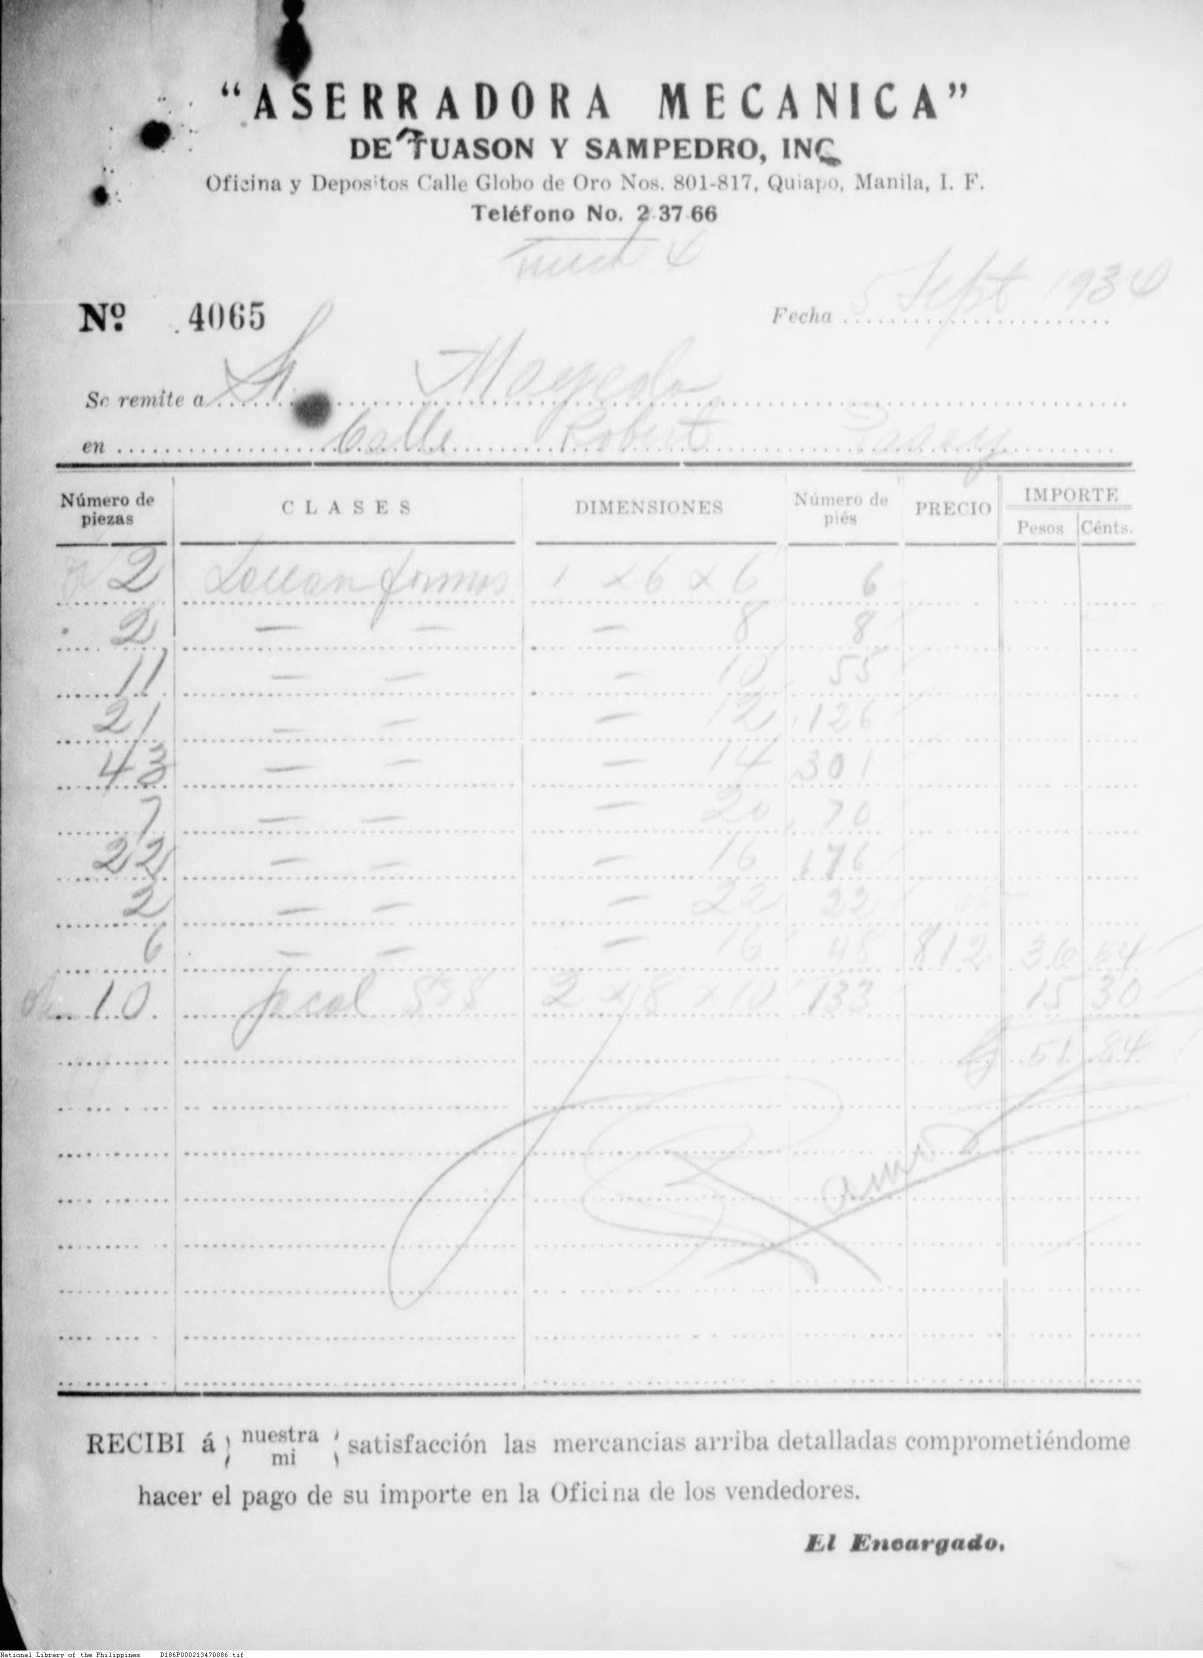 "ASERRADORA MECANICA"
DE TUASON Y SAMPEDRO, INC
Oficina y Depositos Calle Globo de Oro Nos. 801-817, Quiapo, Manila, I. F.
Teléfono No. 2-37-66
Truck 4
Nº 4065
Fecha 5 Sept 1934
Se remite a Sr.
en Calle Robert Pasay
Número de piezas CLASES DIMENSIONES Número de piés PRECIO IMPORTE Pesos Cénts.
2 Lauan formos 1 x 6 x 6 6
2 — — — 8 8
11 — — — 10 55
21 — — — 12 126
43 — — — 14 301
7 — — — 20 70
22 — — — 16 176
2 — — — 22 22
6 — — — 16 48 812 36 54
10 jacal S3S 2 x 8 x 10 133 15 30
51 84
RECIBI á nuestra mi satisfacción las mercancias arriba detalladas comprometiéndome
hacer el pago de su importe en la Oficina de los vendedores.
El Encargado.
National Library of the Philippines D186P000213470086.tif